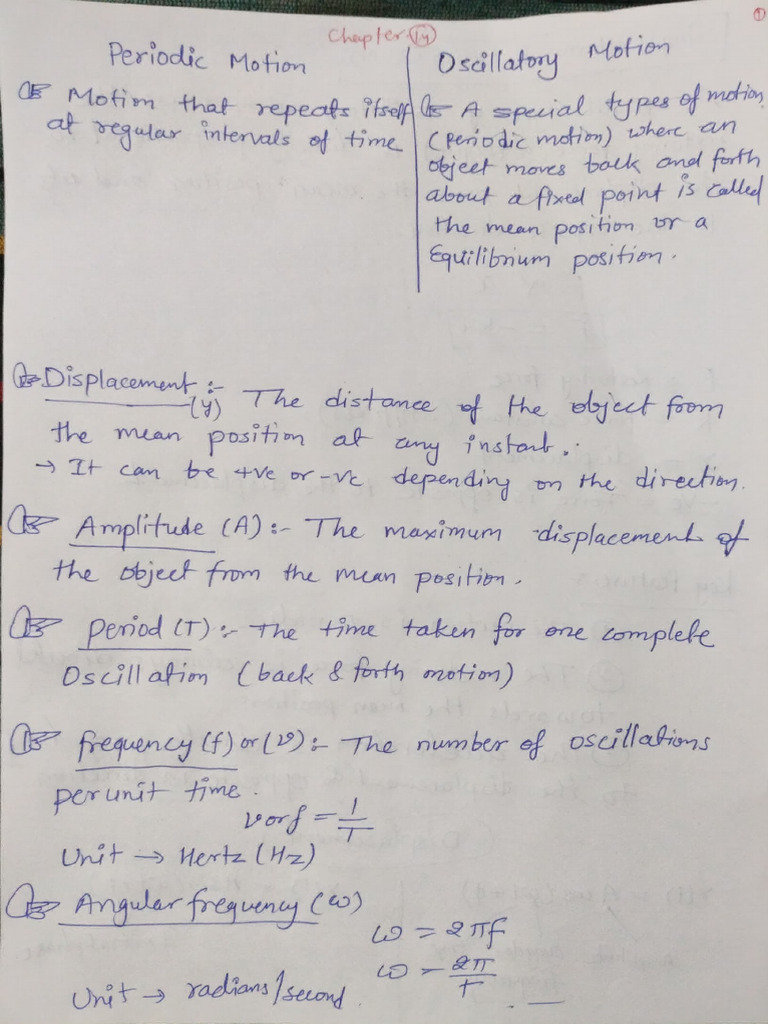 Chapter 14
1
Periodic Motion
Motion that repeats itself
at regular intervals of time
Oscillatory Motion
A special types of motion
(Periodic motion) where an
object moves back and forth
about a fixed point is called
the mean position or a
Equilibrium position.
Displacement :-
(y) The distance of the object from
the mean position at any instant.
→ It can be +ve or -ve depending on the direction.
Amplitude (A) :- The maximum displacement of
the object from the mean position.
Period (T) :- The time taken for one complete
Oscillation (back & forth motion)
frequency (f) or (ν) :- The number of oscillations
per unit time.
ν or f = 1/T
Unit → Hertz (Hz)
Angular frequency (ω)
ω = 2πf
ω = 2π/T
Unit → radians/second.